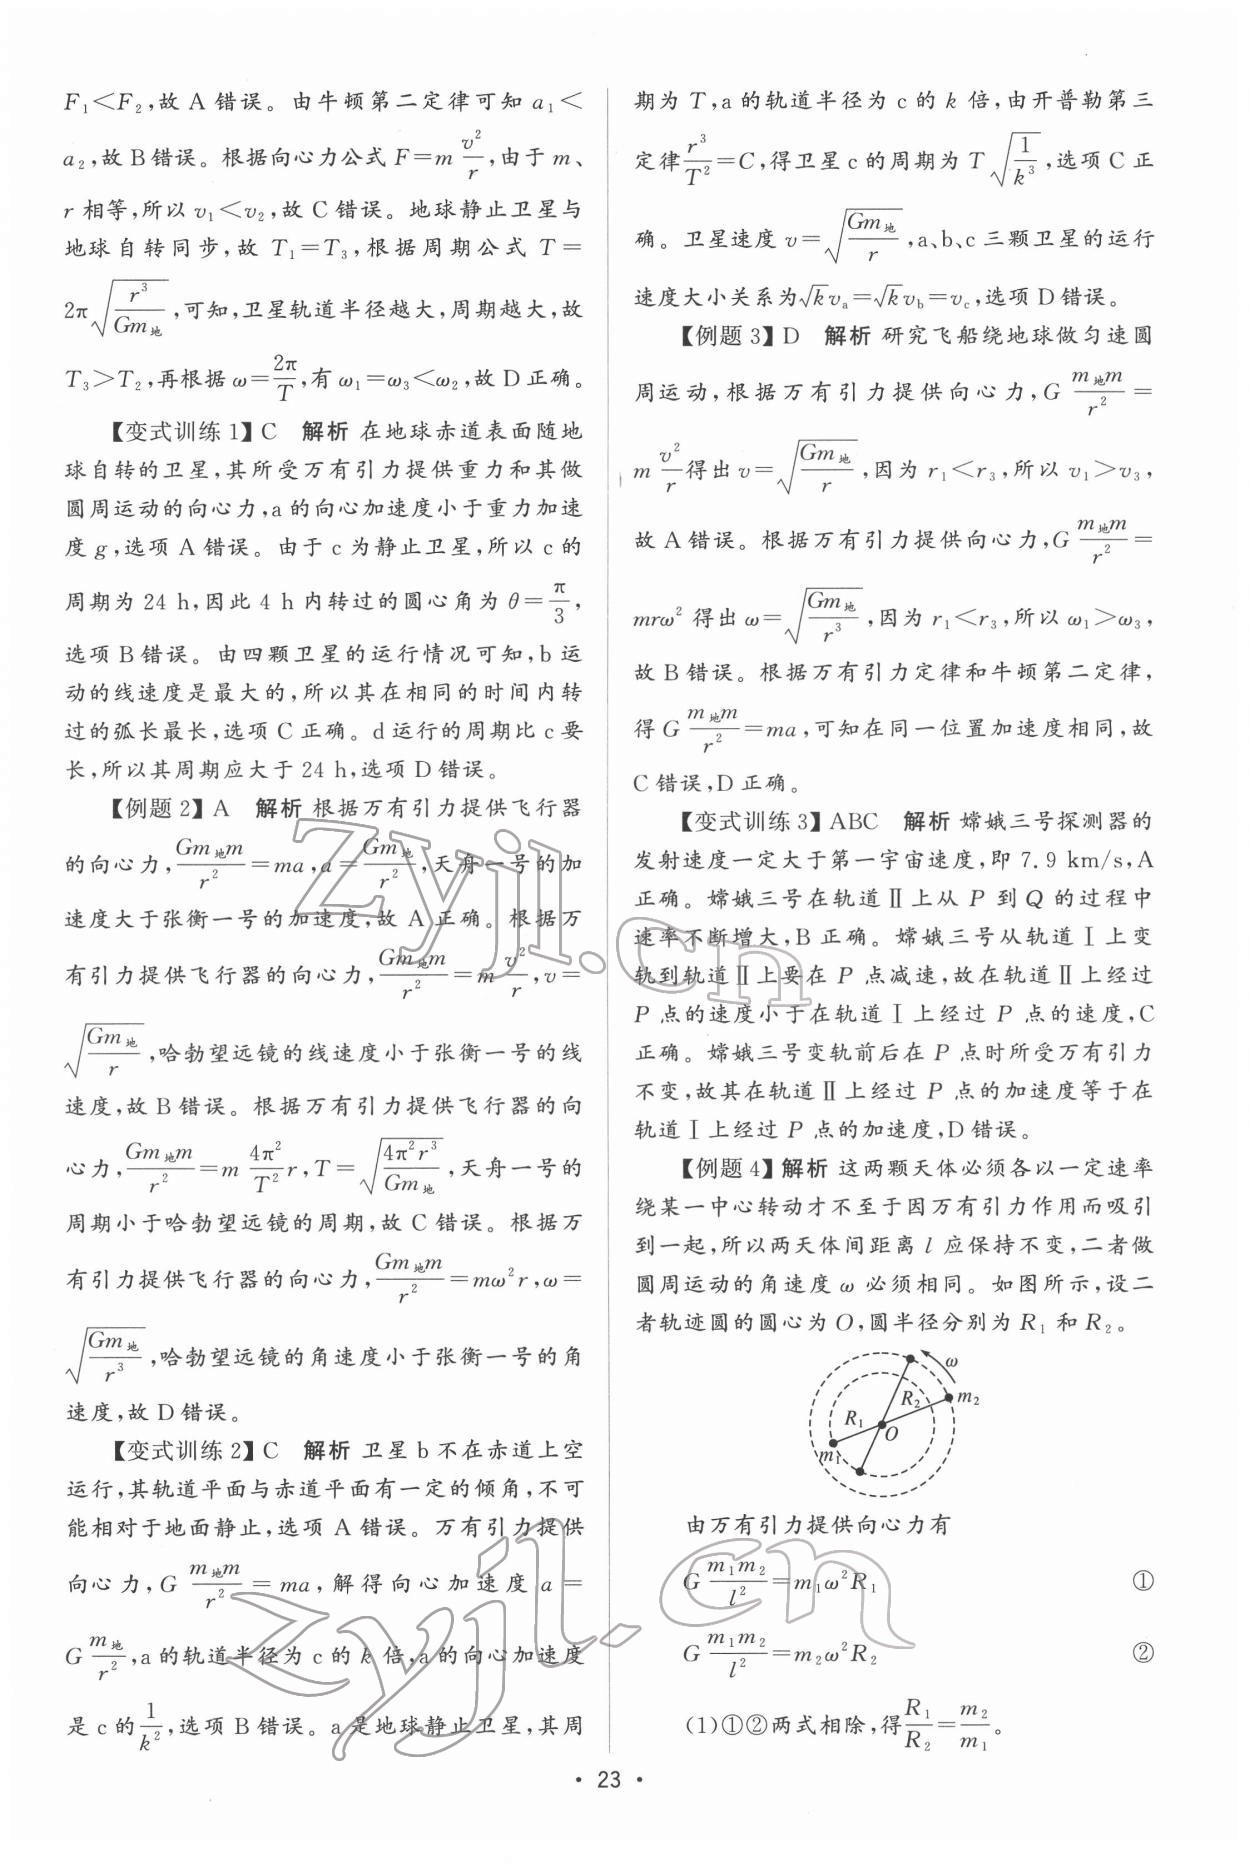 F₁＜F₂,故 A 错误。由牛顿第二定律可知 a₁＜
a₂,故 B 错误。根据向心力公式 F＝m v²/r,由于 m、
r 相等,所以 v₁＜v₂,故 C 错误。地球静止卫星与
地球自转同步,故 T₁＝T₃,根据周期公式 T＝
2π√(r³/Gm地),可知,卫星轨道半径越大,周期越大,故
T₃＞T₂,再根据 ω＝2π/T,有 ω₁＝ω₃＜ω₂,故 D 正确。
【变式训练 1】C 解析 在地球赤道表面随地
球自转的卫星,其所受万有引力提供重力和其做
圆周运动的向心力,a 的向心加速度小于重力加速
度 g,选项 A 错误。由于 c 为静止卫星,所以 c 的
周期为 24 h,因此 4 h 内转过的圆心角为 θ＝π/3,
选项 B 错误。由四颗卫星的运行情况可知,b 运
动的线速度是最大的,所以其在相同的时间内转
过的弧长最长,选项 C 正确。d 运行的周期比 c 要
长,所以其周期应大于 24 h,选项 D 错误。
【例题 2】A 解析 根据万有引力提供飞行器
的向心力,Gm地m/r²＝ma,a＝Gm地/r²,天舟一号的加
速度大于张衡一号的加速度,故 A 正确。根据万
有引力提供飞行器的向心力,Gm地m/r²＝m v²/r,v＝
√(Gm地/r),哈勃望远镜的线速度小于张衡一号的线
速度,故 B 错误。根据万有引力提供飞行器的向
心力,Gm地m/r²＝m 4π²/T² r,T＝√(4π²r³/Gm地),天舟一号的
周期小于哈勃望远镜的周期,故 C 错误。根据万
有引力提供飞行器的向心力,Gm地m/r²＝mω²r,ω＝
√(Gm地/r³),哈勃望远镜的角速度小于张衡一号的角
速度,故 D 错误。
【变式训练 2】C 解析 卫星 b 不在赤道上空
运行,其轨道平面与赤道平面有一定的倾角,不可
能相对于地面静止,选项 A 错误。万有引力提供
向心力,G m地m/r²＝ma,解得向心加速度 a＝
G m地/r²,a 的轨道半径为 c 的 k 倍,a 的向心加速度
是 c 的 1/k²,选项 B 错误。a 是地球静止卫星,其周
期为 T,a 的轨道半径为 c 的 k 倍,由开普勒第三
定律 r³/T²＝C,得卫星 c 的周期为 T√(1/k³),选项 C 正
确。卫星速度 v＝√(Gm地/r),a、b、c 三颗卫星的运行
速度大小关系为√k vₐ＝√k v_b＝v_c,选项 D 错误。
【例题 3】D 解析 研究飞船绕地球做匀速圆
周运动,根据万有引力提供向心力,G m地m/r²＝
m v²/r 得出 v＝√(Gm地/r),因为 r₁＜r₃,所以 v₁＞v₃,
故 A 错误。根据万有引力提供向心力,G m地m/r²＝
mrω² 得出 ω＝√(Gm地/r³),因为 r₁＜r₃,所以 ω₁＞ω₃,
故 B 错误。根据万有引力定律和牛顿第二定律,
得 G m地m/r²＝ma,可知在同一位置加速度相同,故
C 错误,D 正确。
【变式训练 3】ABC 解析 嫦娥三号探测器的
发射速度一定大于第一宇宙速度,即 7.9 km/s,A
正确。嫦娥三号在轨道Ⅱ上从 P 到 Q 的过程中
速率不断增大,B 正确。嫦娥三号从轨道Ⅰ上变
轨到轨道Ⅱ上要在 P 点减速,故在轨道Ⅱ上经过
P 点的速度小于在轨道Ⅰ上经过 P 点的速度,C
正确。嫦娥三号变轨前后在 P 点时所受万有引力
不变,故其在轨道Ⅱ上经过 P 点的加速度等于在
轨道Ⅰ上经过 P 点的加速度,D 错误。
【例题 4】解析 这两颗天体必须各以一定速率
绕某一中心转动才不至于因万有引力作用而吸引
到一起,所以两天体间距离 l 应保持不变,二者做
圆周运动的角速度 ω 必须相同。如图所示,设二
者轨迹圆的圆心为 O,圆半径分别为 R₁ 和 R₂。
ω
R₂ m₂
R₁ O
m₁
由万有引力提供向心力有
G m₁m₂/l²＝m₁ω²R₁ ①
G m₁m₂/l²＝m₂ω²R₂ ②
(1)①②两式相除,得 R₁/R₂＝m₂/m₁。
· 23 ·
zyjl.cn
zyjl.cn